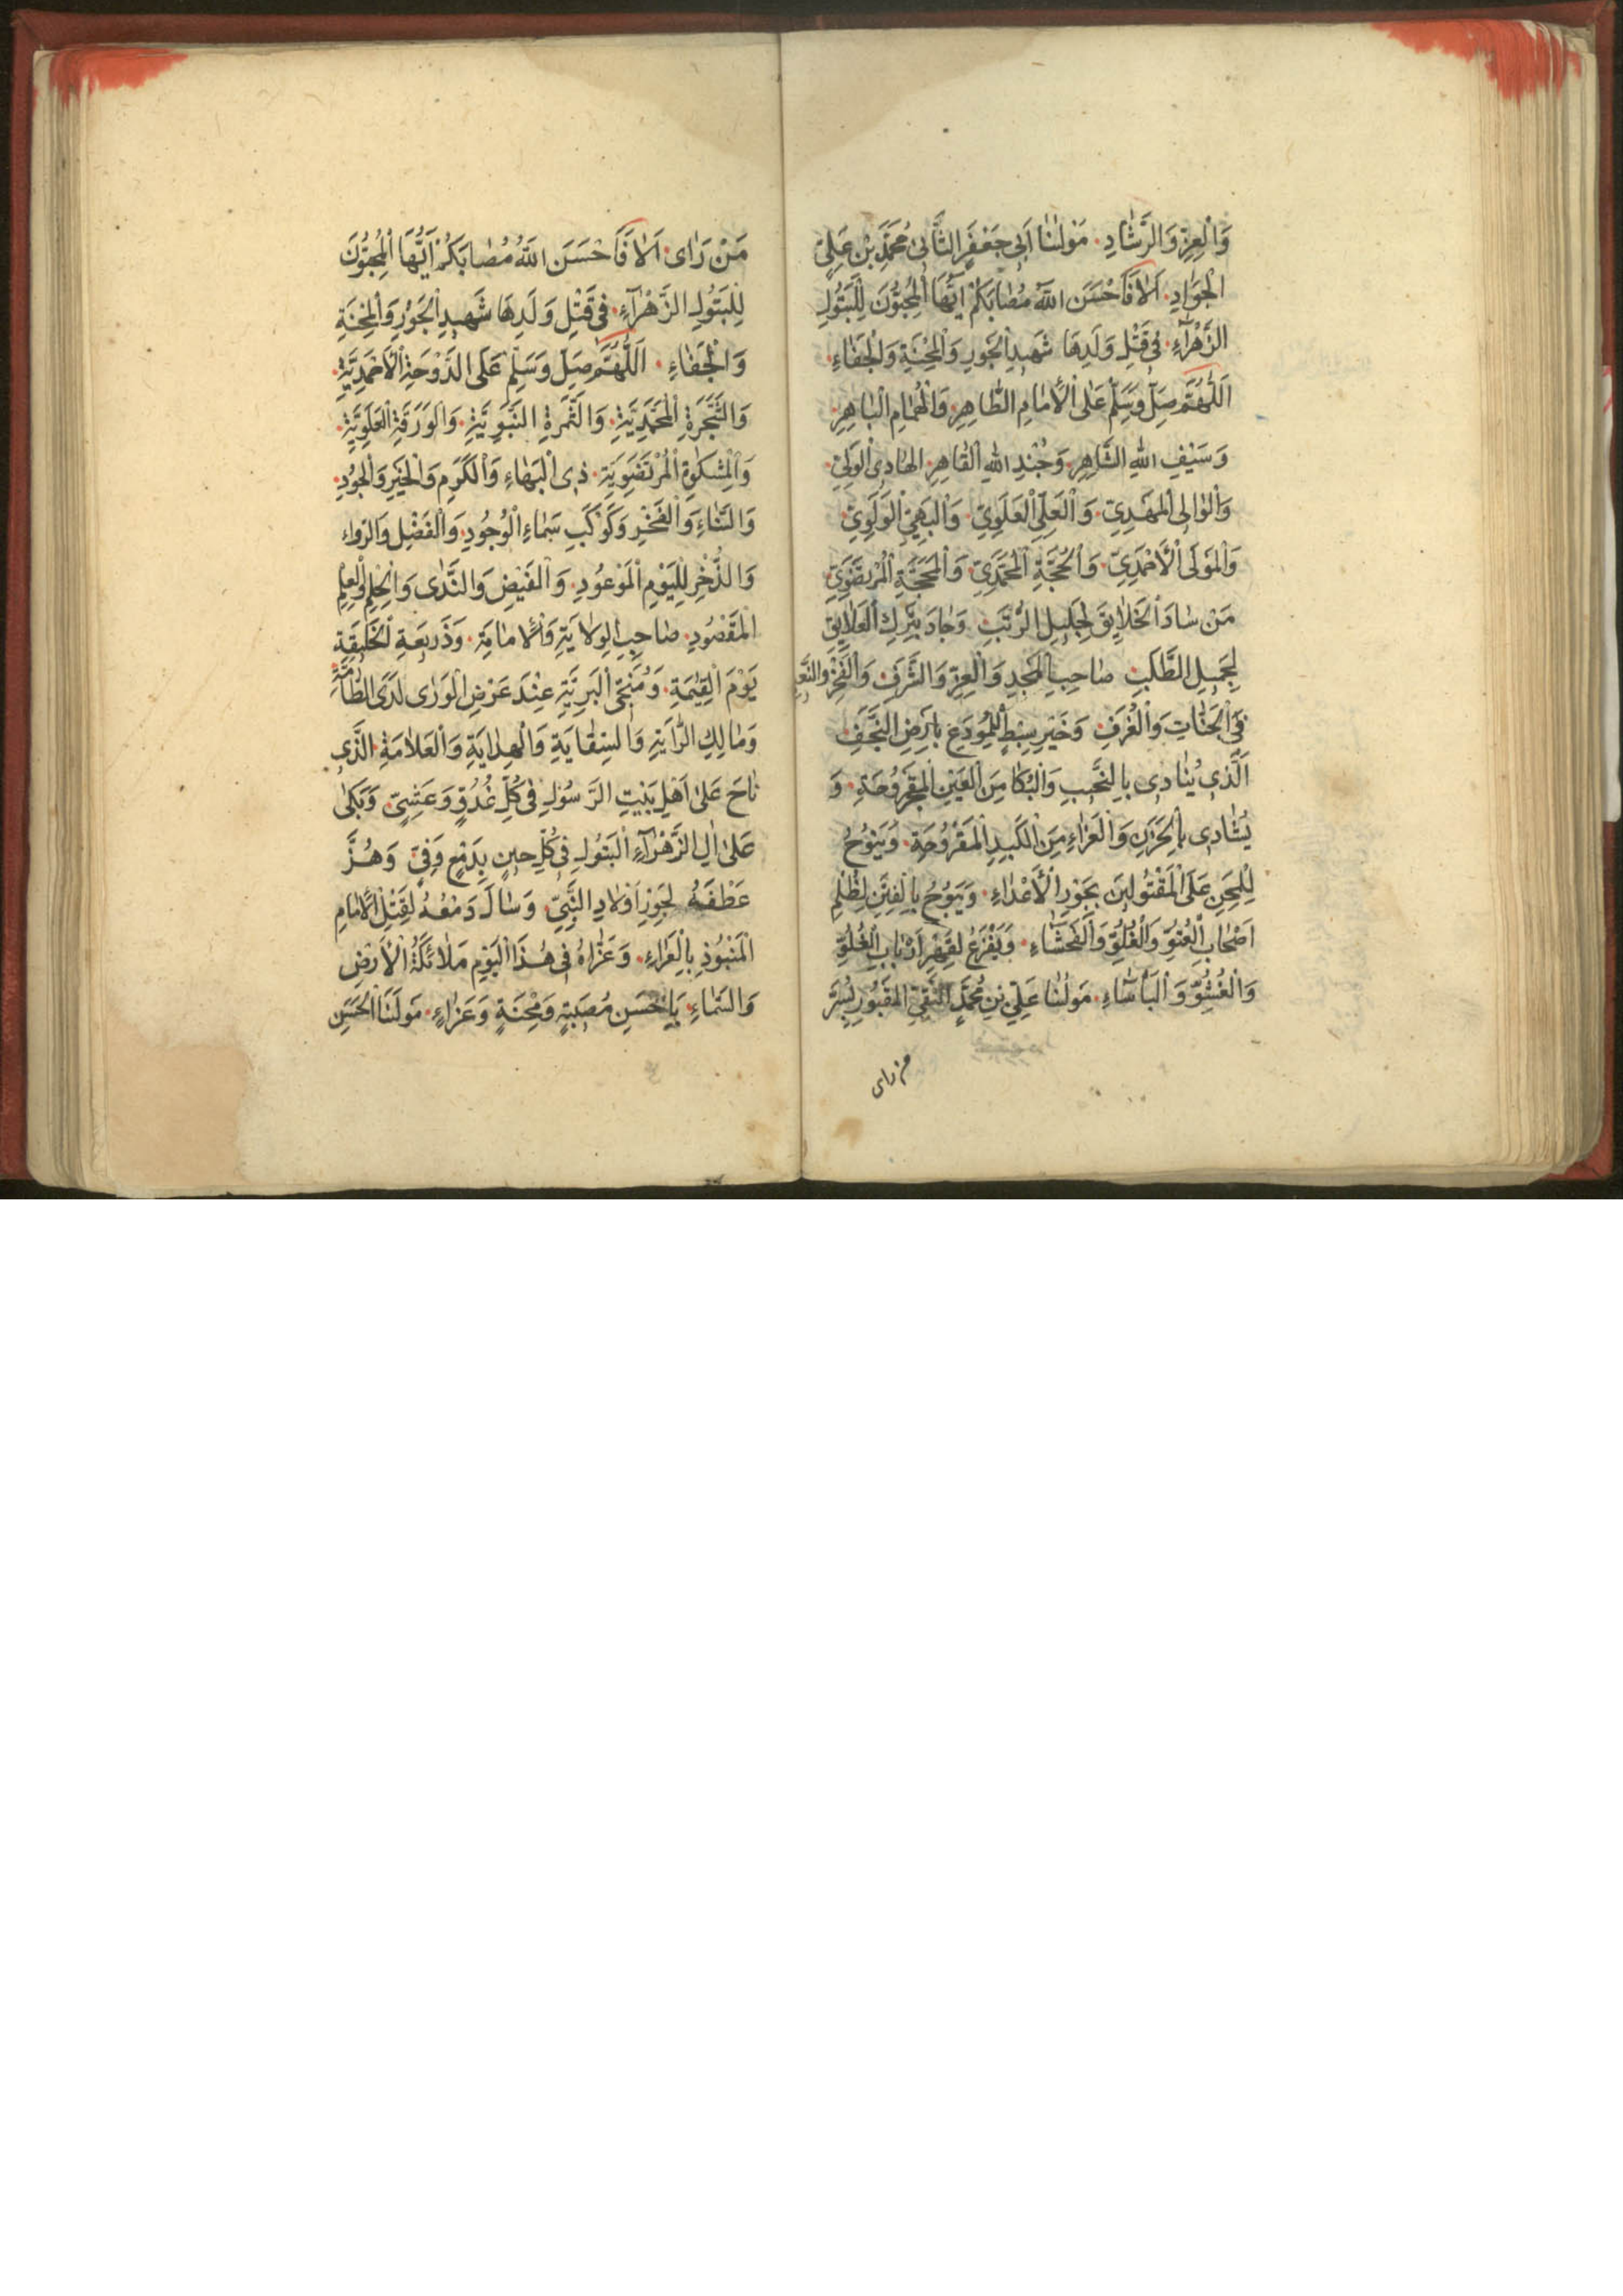 وَالْعِزِّ وَالرَّشَادِ. مَوْلٰنَا اَبِى جَعْفَرٍ الثَّانِى مُحَمَّدِ بْنِ عَلِىٍّ
الْجَوَادِ. اَلَا فَاَحْسَنَ اللهُ مُصَابَكُمْ اَيُّهَا الْمُحِبُّونَ لِلْبَتُولِ
الزَّهْرَآءِ. فِى قَتْلِ وَلَدِهَا شَهِيدِ الْجَوْرِ وَالْمِحْنَةِ وَالْجَفَاءِ.
اَللّٰهُمَّ صَلِّ وَسَلِّمْ عَلَى الْاِمَامِ الطَّاهِرِ. وَالْهُمَامِ الْبَاهِرِ.
وَسَيْفِ اللهِ الشَّاهِرِ. وَجُنْدِ اللهِ الْقَاهِرِ. الْهَادِى الْوَلِىِّ.
وَالْوَالِى الْمَهْدِىِّ. وَالْعَلِىِّ الْعَلَوِىِّ. وَالْبَهِىِّ الْوَلَوِىِّ.
وَالْمَوْلَى الْاَحْمَدِىِّ. وَالْحُجَّةِ الْمُحَمَّدِىِّ. وَالْمَحَجَّةِ الْمُرْتَضَوِىِّ
مَنْ سَادَ الْخَلَايِقَ لِجَلِيلِ الرُّتَبِ. وَجَادَ بِتَرْكِ الْعَلَايِقِ
لِجَمِيلِ الطَّلَبِ. صَاحِبِ الْمَجْدِ وَالْعِزِّ وَالشَّرَفِ وَالْفَخْرِ
فِى الْجَنَّاتِ وَالْغُرَفِ. وَخَيْرِ سِبْطٍ لِلْمُودَعِ بِاَرْضِ النَّجَفِ.
الَّذِى يُنَادِى بِالنَّحِيبِ وَالْبُكَا مِنَ الْعَيْنِ الْمَقْرُوحَةِ. وَ
يُنَادِى بِالْحَزَنِ وَالْعَزَاءِ مِنَ الْكَبِدِ الْمَقْرُوحَةِ. وَيَنُوحُ
لِلْمِحَنِ عَلَى الْمَقْتُولِينَ بِجَوْرِ الْاَعْدَاءِ. وَيَبُوحُ بِالْفِتَنِ لِظُلْمِ
اَصْحَابِ الْعُتُوِّ وَالْغُلُوِّ وَالْفَحْشَاءِ. وَيَفْزَعُ لِقَهْرِ اَرْبَابِ الْغُلُوِّ
وَالْغُشُوِّ وَالْبَأْسَاءِ. مَوْلٰنَا عَلِىِّ بْنِ مُحَمَّدٍ النَّقِىِّ الْمَقْبُورِ بِسُرَّ
من رای
مَنْ رَاٰى. اَلَا فَاَحْسَنَ اللهُ مُصَابَكُمْ اَيُّهَا الْمُحِبُّونَ
لِلْبَتُولِ الزَّهْرَآءِ. فِى قَتْلِ وَلَدِهَا شَهِيدِ الْجَوْرِ وَالْمِحْنَةِ
وَالْجَفَاءِ. اَللّٰهُمَّ صَلِّ وَسَلِّمْ عَلَى الدَّوْحَةِ الْاَحْمَدِيَّةِ.
وَالشَّجَرَةِ الْمُحَمَّدِيَّةِ. وَالثَّمَرَةِ النَّبَوِيَّةِ. وَالْوَرَقَةِ الْعَلَوِيَّةِ.
وَالْمِشْكٰوةِ الْمُرْتَضَوِيَّةِ. ذِى الْبَهَاءِ وَالْكَرَمِ وَالْخَيْرِ وَالْجُودِ.
وَالثَّنَاءِ وَالْفَخْرِ وَكَوْكَبِ سَمَاءِ الْوُجُودِ. وَالْفَضْلِ وَالرواء
وَالذُّخْرِ لِلْيَوْمِ الْمَوْعُودِ. وَالْفَيْضِ وَالنَّدٰى وَالْحِلْمِ وَالْعِلْمِ
الْمَقْصُودِ. صَاحِبِ الْوِلَايَةِ وَالْاِمَامَةِ. وَذَرِيعَةِ الْخَلِيقَةِ
يَوْمَ الْقِيٰمَةِ. وَمُنْجِى الْبَرِيَّةِ عِنْدَ عَرْضِ الْوَرٰى لَدَى الطَّامَّةِ.
وَمَالِكِ الرَّايَةِ وَالسِّقَايَةِ وَالْهِدَايَةِ وَالْعَلَامَةِ. الَّذِى
نَاحَ عَلٰى اَهْلِ بَيْتِ الرَّسُولِ فِى كُلِّ غُدُوٍّ وَعَشِىٍّ. وَبَكٰى
عَلٰى اٰلِ الزَّهْرَآءِ الْبَتُولِ فِى كُلِّ حِينٍ بِدَمْعٍ وَفِىٍّ. وَهُزَّ
عَطْفُهُ لِجَوْرِ اَوْلَادِ النَّبِىِّ. وَسَالَ دَمْعُهُ لِقَتْلِ الْاِمَامِ
الْمَنْبُوذِ بِالْعَرَاءِ. وَعَزَّاهُ فِى هٰذَا الْيَوْمِ مَلَائِكَةُ الْاَرْضِ
وَالسَّمَاءِ. بِاَحْسَنِ مُصِيبَةٍ وَمِحْنَةٍ وَعَزَاءٍ. مَوْلَنَا الْحَسَنِ